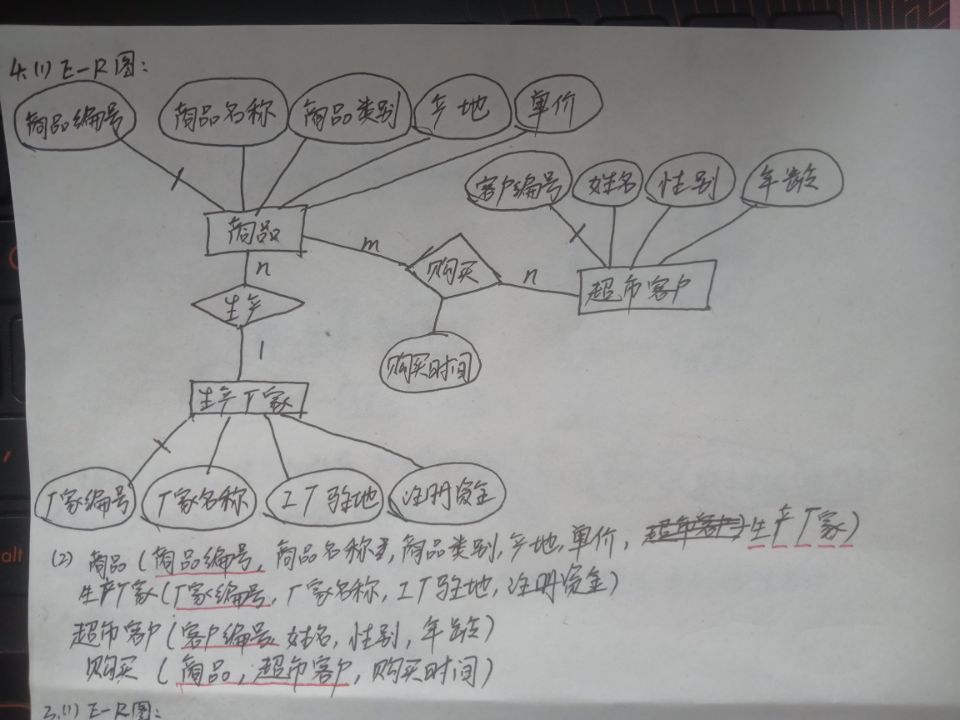 4.(1) E-R图:
商品编号 商品名称 商品类别 产地 单价
客户编号 姓名 性别 年龄
商品 m 购买 n 超市客户
n
生产
购买时间
1
生产厂家
厂家编号 厂家名称 工厂驻地 注册资金
(2) 商品(商品编号,商品名称,商品类别,产地,单价,超市客户,生产厂家)
生产厂家(厂家编号,厂家名称,工厂驻地,注册资金)
超市客户(客户编号,姓名,性别,年龄)
购买(商品,超市客户,购买时间)
3.(1) E-R图:
alt